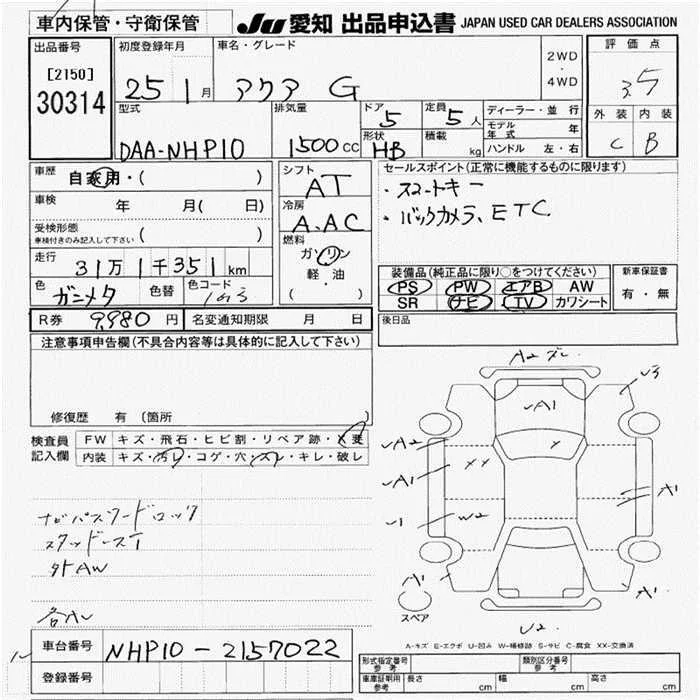 車内保管・守衛保管
JU 愛知 出品申込書 JAPAN USED CAR DEALERS ASSOCIATION
出品番号
[2150]
30314
初度登録年月
25 1 月
車名・グレード
アクア G
2WD
・
4WD
評価点
3.5
外装 内装
C B
型式
DAA-NHP10
排気量
1500 CC
ドア
5
定員
5 人
形状
HB
積載
kg
ディーラー・並行
モデル年式 年
ハンドル 左・右
車歴
自家用・( )
車検 年 月( 日)
受検形態
車検付きのみ記入して下さい ( )
走行
31万1千351km
色
ガンメタ
色替
色コード
シフト
AT
冷房
A.AC
燃料
ガソリン
軽・油
( )
セールスポイント(正常に機能するものに限ります)
・スマートキー
・バックカメラ、ETC
装備品(純正品に限り○をつけてください)
PS PW エアB AW
SR ナビ TV カワシート
新車保証書
有・無
R券 9,980 円 名変通知期限 月 日
後日品
注意事項申告欄(不具合内容等は具体的に記入して下さい)
修復歴 有 〔箇所 〕
検査員記入欄
FW キズ・飛石・ヒビ割・リペア跡・X要
内装 キズ・汚レ・コゲ・穴・スレ・キレ・破レ
ナビパスワードロック
スタッドレスT
外AW
A2
A1
A2
A1
W2
XX
A1
A1
A1
U2
スペア
A-キズ E-エクボ U-凹み W-補修跡 S-サビ C-腐食 XX-交換済
車台番号 NHP10-2157022
登録番号
形式指定番号 参考
類別区分番号 参考
車庫証明用 参考 長さ cm 幅 cm 高さ cm